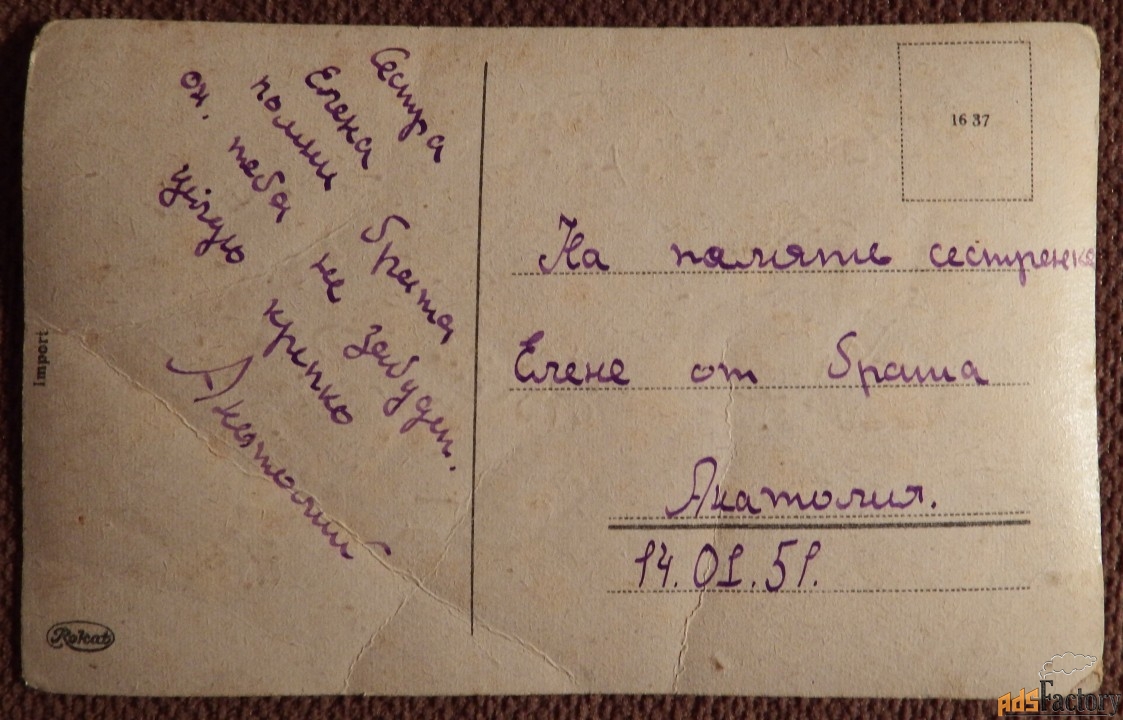 Сестра
Елена
помни брата
он. тебя не забуден.
Цілую крепко
Анатолий
Import
Rokat
16 37
На память сестренке
Елене от брата
Анатолия.
14.01.51.
AdsFactory